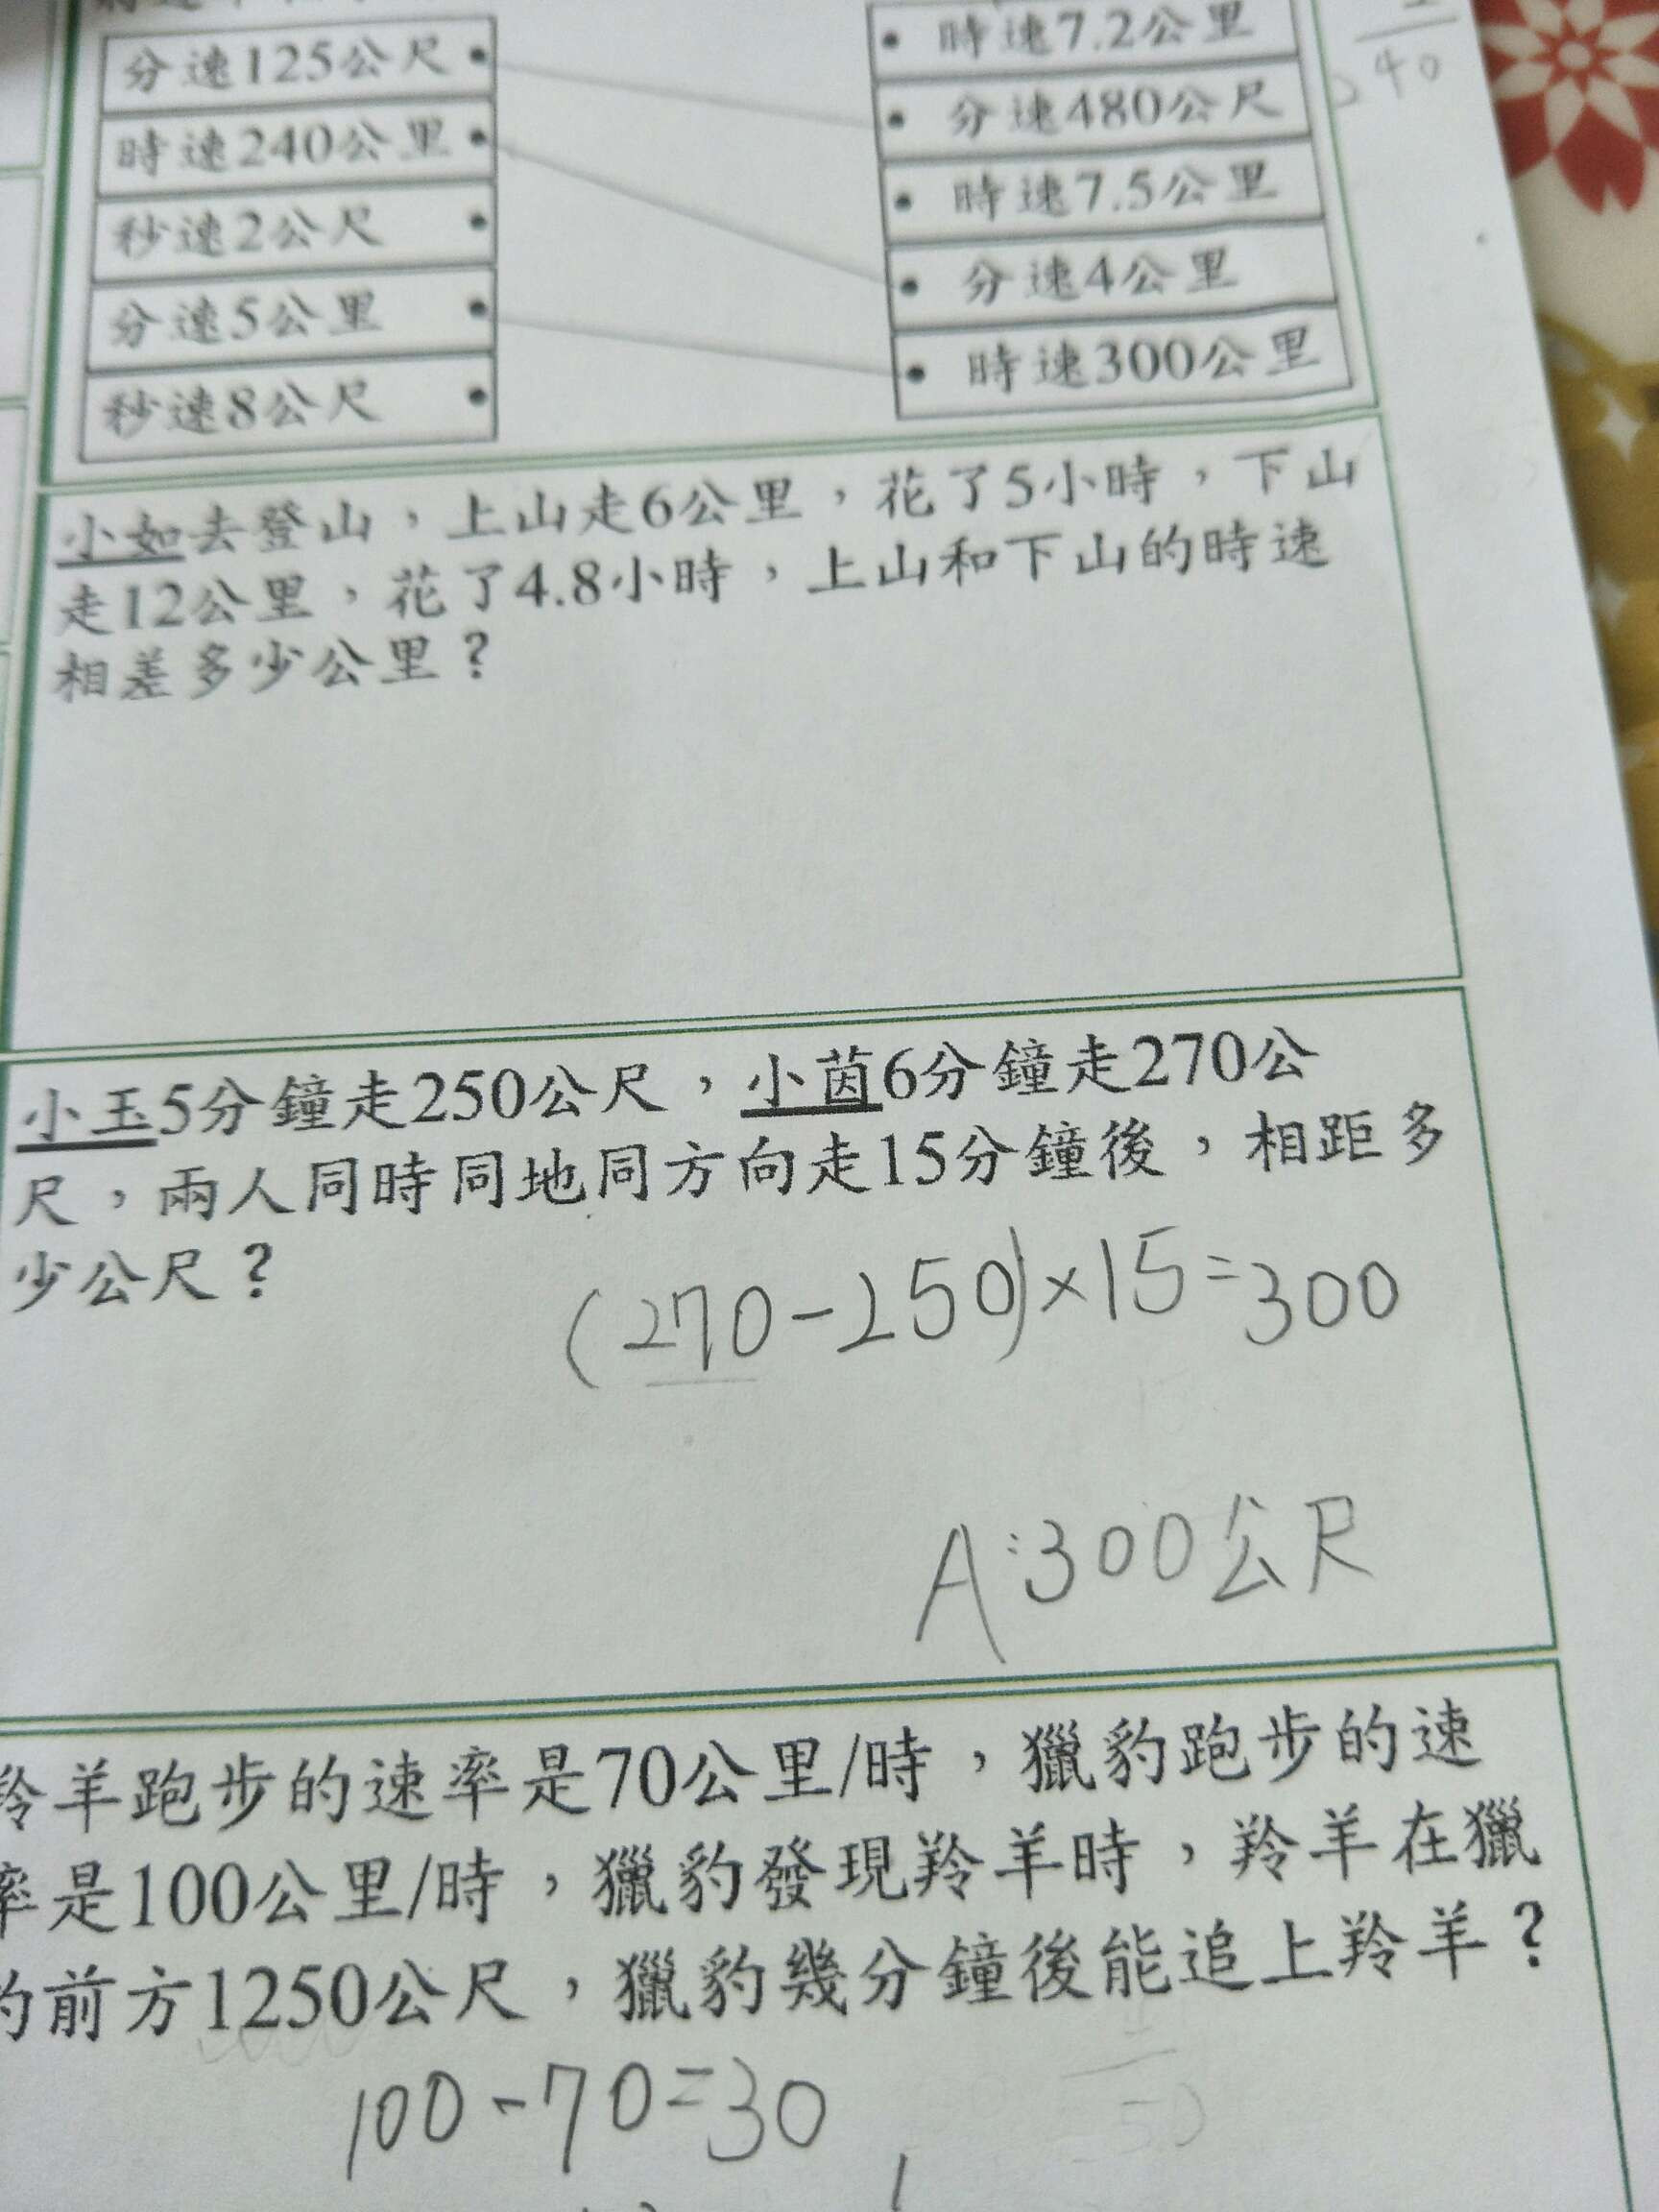 分速125公尺
時速240公里
秒速2公尺
分速5公里
秒速8公尺
時速7.2公里
分速480公尺
時速7.5公里
分速4公里
時速300公里
40
小如去登山，上山走6公里，花了5小時，下山
走12公里，花了4.8小時，上山和下山的時速
相差多少公里？
小玉5分鐘走250公尺，小茵6分鐘走270公
尺，兩人同時同地同方向走15分鐘後，相距多
少公尺？
(270-250)×15=300
A:300公尺
羚羊跑步的速率是70公里/時，獵豹跑步的速
率是100公里/時，獵豹發現羚羊時，羚羊在獵
的前方1250公尺，獵豹幾分鐘後能追上羚羊？
100-70=30